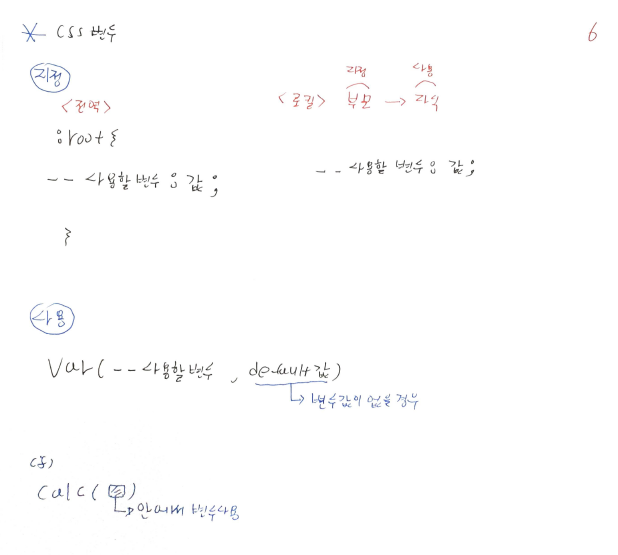 * CSS 변수
6
지정
<전역>
:root {
-- 사용할 변수 : 값 ;
}
지정 사용
<로컬> 부모 → 자식
-- 사용할 변수 : 값 ;
사용
Var( -- 사용할 변수 , default 값 )
→ 변수 값이 없을 경우
calc( )
→ 안에서 변수사용